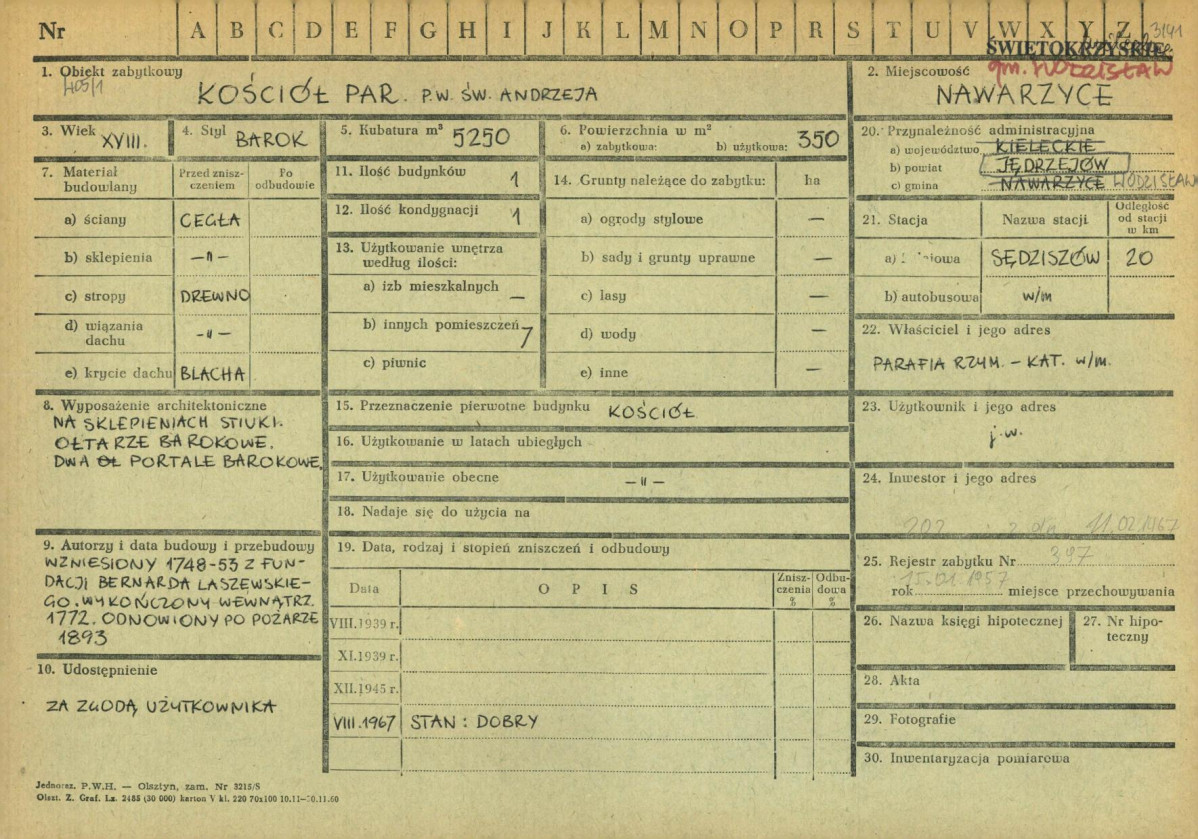 Nr A B C D E F G H I J K L M N O P R S T U V W X Y Z 3141
ŚWIĘTOKRZYSKIE
gm. WODZISŁAW
1. Obiekt zabytkowy
405/1
KOŚCIÓŁ PAR. P.W. ŚW. ANDRZEJA
2. Miejscowość
NAWARZYCE
3. Wiek XVIII.
4. Styl BAROK
5. Kubatura m³ 5250
6. Powierzchnia w m²
a) zabytkowa: b) użytkowa: 350
7. Materiał budowlany
Przed zniszczeniem
Po odbudowie
a) ściany CEGŁA
b) sklepienia —„—
c) stropy DREWNO
d) wiązania dachu —„—
e) krycie dachu BLACHA
8. Wyposażenie architektoniczne
NA SKLEPIENIACH STIUKI.
OŁTARZE BAROKOWE.
DWA OŁ PORTALE BAROKOWE.
9. Autorzy i data budowy i przebudowy
WZNIESIONY 1748-53 Z FUN-
DACJI BERNARDA LASZEWSKIE-
GO. WYKOŃCZONY WEWNĄTRZ.
1772. ODNOWIONY PO POŻARZE
1893
10. Udostępnienie
ZA ZGODĄ UŻYTKOWNIKA
11. Ilość budynków 1
12. Ilość kondygnacji 1
13. Użytkowanie wnętrza
według ilości:
a) izb mieszkalnych —
b) innych pomieszczeń 7
c) piwnic
14. Grunty należące do zabytku: ha
a) ogrody stylowe —
b) sady i grunty uprawne —
c) lasy —
d) wody —
e) inne —
15. Przeznaczenie pierwotne budynku KOŚCIÓŁ
16. Użytkowanie w latach ubiegłych
17. Użytkowanie obecne —„—
18. Nadaje się do użycia na
19. Data, rodzaj i stopień zniszczeń i odbudowy
Data O P I S Zniszczenia % Odbudowa %
VIII.1939 r.
XI.1939 r.
XII.1945 r.
VIII.1967 STAN : DOBRY
20. Przynależność administracyjna
a) województwo KIELECKIE
b) powiat JĘDRZEJÓW
c) gmina NAWARZYCE WODZISŁAW
21. Stacja Nazwa stacji Odległość od stacji w km
a) SĘDZISZÓW 20
b) autobusowa w/m
22. Właściciel i jego adres
PARAFIA RZYM. – KAT. w/m.
23. Użytkownik i jego adres
j.w.
24. Inwestor i jego adres
202 z dn. 11.02.1967
25. Rejestr zabytku Nr 397
15.01.1957
rok miejsce przechowywania
26. Nazwa księgi hipotecznej
27. Nr hipoteczny
28. Akta
29. Fotografie
30. Inwentaryzacja pomiarowa
Jednoraz. P.W.H. — Olsztyn, zam. Nr 3215/S
Olszt. Z. Graf. Lz. 2485 (30 000) karton V kl. 220 70x100 10.11—30.11.60